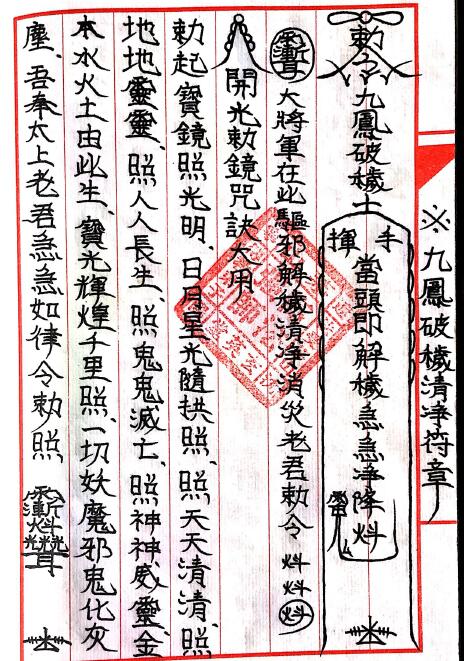 ※九鳳破穢清淨符章
勅令九鳳破穢士
手揮
當頭即解穢急急淨降
大將軍在此驅邪解穢清淨消災老君勅令
開光勅鏡咒訣大用
勅起寶鏡照光明、日月星光隨拱照、照天天清清、照
地地靈靈、照人人長生、照鬼鬼滅亡、照神神威靈、金
木水火土由此生、寶光輝煌千里照、一切妖魔邪鬼化灰
塵、吾奉太上老君急急如律令勅照